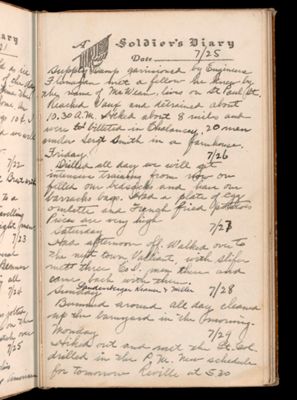 A Soldier's Diary
Date 7/25
Supply camp garrisoned by Engineers
met a fellow who knew by
the name of McVean, lives on St. Paul St.
Reached Vaux and detrained about
10.30 A.M. Hiked about 8 miles and
were billeted in Chalancey, 20 men
under Sergt Smith in a farmhouse.
Friday 7/26
Drilled all day we will get
intensive training from now on
filled our bedsacks and have our
barracks bags. Had a plate of Egg
omlette and French fried Potatoes
Prices are very high
Saturday 7/27
Had afternoon off. Walked over to
the next town Vaillant, with
mett three Co. I. men there and
came back with them
Sunday 7/28
Bummed around all day cleaned
up the barnyard in the morning.
Monday 7/29
Hiked out and met the
drilled in the P.M. New schedule
for tomorrow Reville at 5 30
7/22
7/23
7/24
7/25